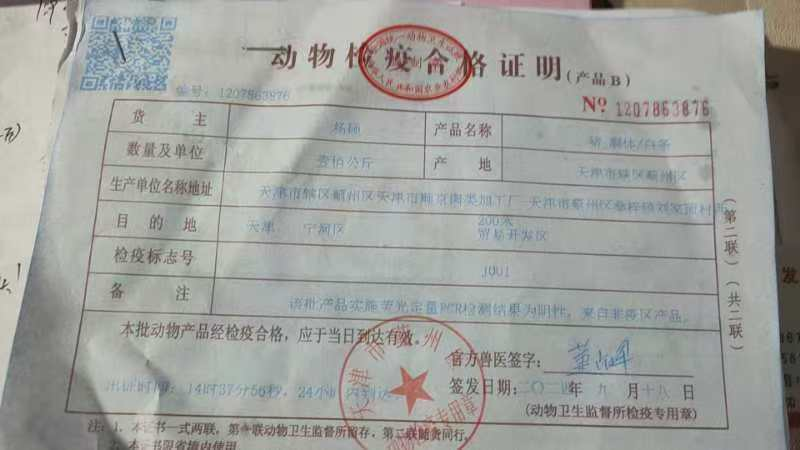 动物检疫合格证明(产品B)
编号: 1207863876
№ 1207863876
货主 杨硕 产品名称 猪 胴体/白条
数量及单位 壹佰公斤 产地 天津市辖区蓟州区
生产单位名称地址 天津市辖区蓟州区天津市顺京肉类加工厂 天津市蓟州区
200米
目的地 天津 宁河区 贸易开发区
检疫标志号 J001
备注 该批产品实施荧光定量PCR检测结果为阴性,来自非疫区产品。
本批动物产品经检疫合格,应于当日到达有效。
官方兽医签字:
签发日期: 九月十八日
出证时间: 14时37分56秒, 24小时内到达
(动物卫生监督所检疫专用章)
注: 1、本证书一式两联,第一联动物卫生监督所留存,第二联随货同行。
2、本证书限省境内使用。
(第二联)
(共二联)
天津市蓟州
专用章